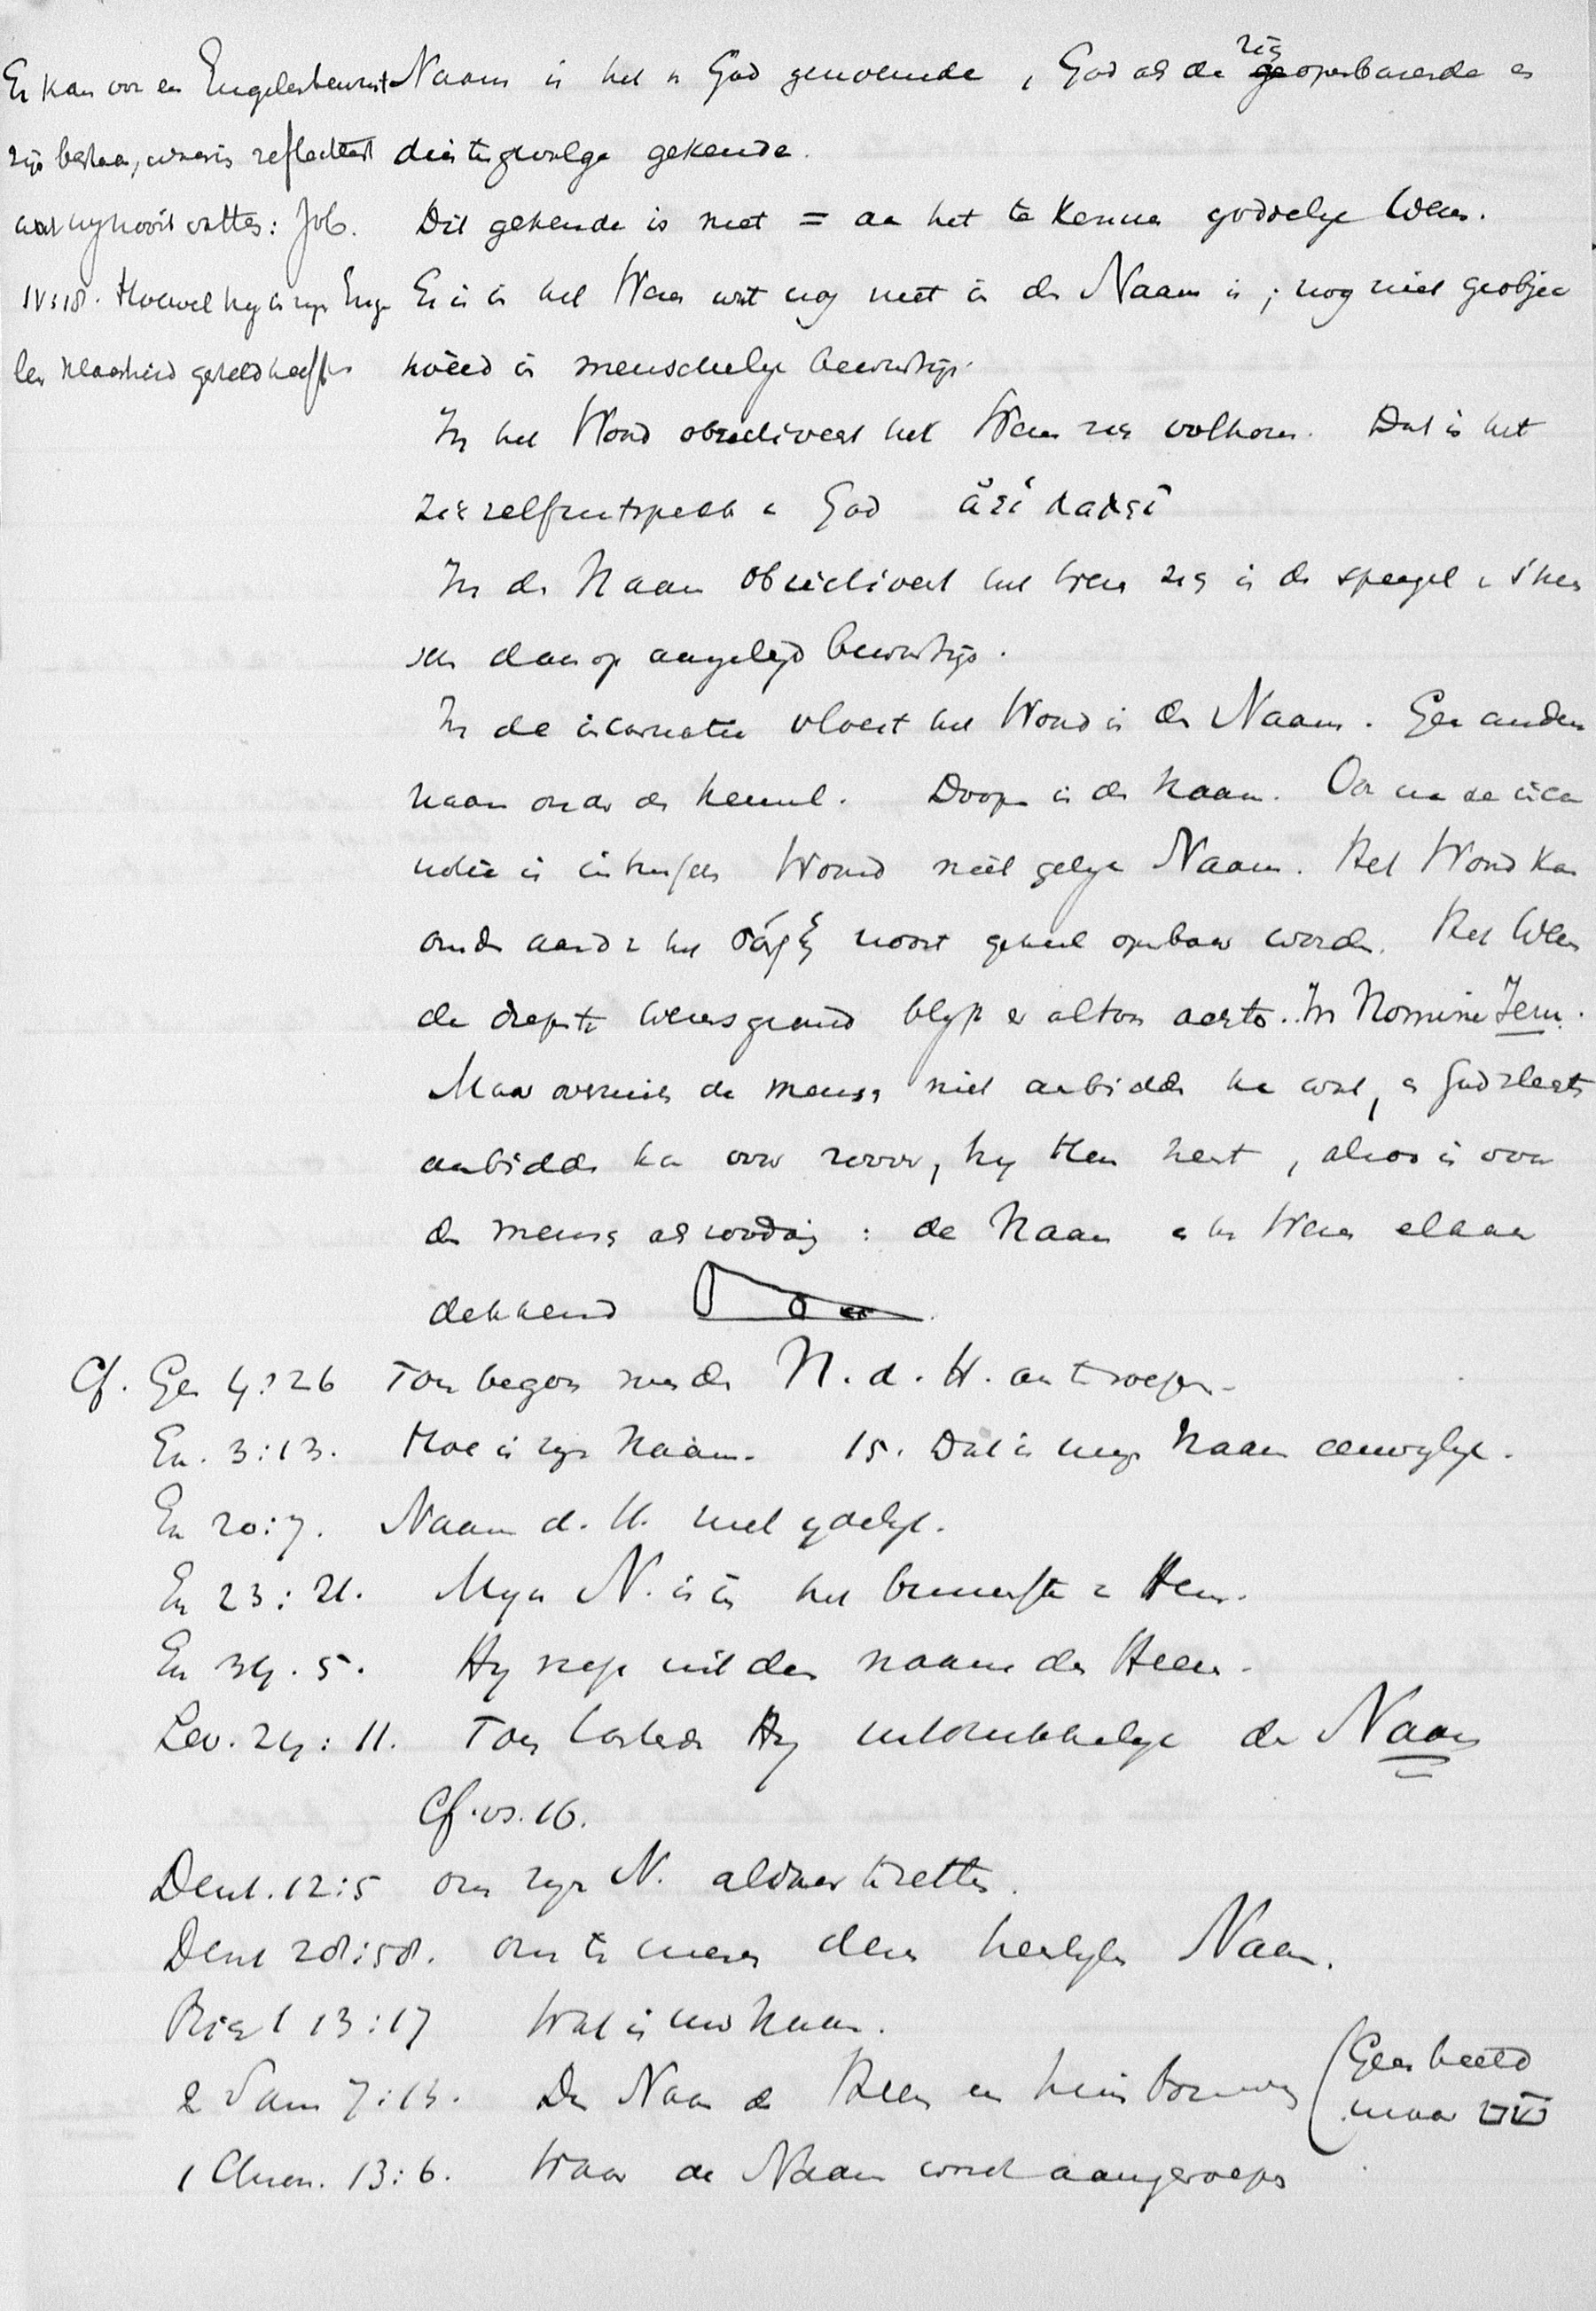 Er kan voor een Engelenbewust
zijn bestaan, waarin reflecteert
wat wij nooit vatten: Job.
IV:18. Hoewel hij in zijn Enge
len klaarheid gesteld heeft
Naam is het in God genoemde, God als de zich openbarende en
dientengevolge gekende.
Dit gekende is niet = aan het te kennen goddelijk Wezen.
Er is in het Wezen wat nog niet in den Naam is; nog niet geobjec
tiveerd in menschelijk bewustzijn.
In het Woord objectiveert het Wezen zich volkomen. Dat is het
zichzelf uitspreken in God
In den Naam objectiveert het Wezen zich in den spiegel v 's men
schen daarop aangelegd bewustzijn.
In de incarnatie vloeit het Woord in den Naam. Geen anderen
naam onder den hemel. Doopen in den Naam. Ook na de incar
natie is Woord niet gelijk Naam. Het Woord kan
onder het σάρξ nooit geheel openbaar worden. Het Wezen
de diepste wezensgrond blijft er altoos achter. In Nomine Jesu.
Maar overmits de mensch niet aanbidden kan wat, en God slechts
aanbidden kan voor zoover, hij Hem kent, alzoo is voor
den mensch als zoodanig: de Naam en het Wezen elkaar
dekkend
Cf. Gen 4:26 Toen begon men den N. d. H. aan te roepen.
Ex. 3:13. Hoe is zijn Naam. 15. Dat is mijn Naam eeuwiglijk.
Ex 20:7. Naam d. H. niet ijdelijk.
Ex 23:21. Mijn N. is in het binnenste v Hem.
Ex 34.5. Hij riep uit den naam des Heeren.
Lev. 24:11. Toen lasterde Hij uitdrukkelijk den Naam
Cf. vs. 16.
Deut. 12:5 om zijn N. aldaar te zetten.
Deut 28:58. om te vreezen dezen heerlijken Naam.
Richt 13:17 Wat is uw Naam.
2 Sam 7:13. Den Naam des Heeren een huis bouwen (Geen beeld
maar שם
1 Chron. 13:6. Waar de Naam wordt aangeroepen